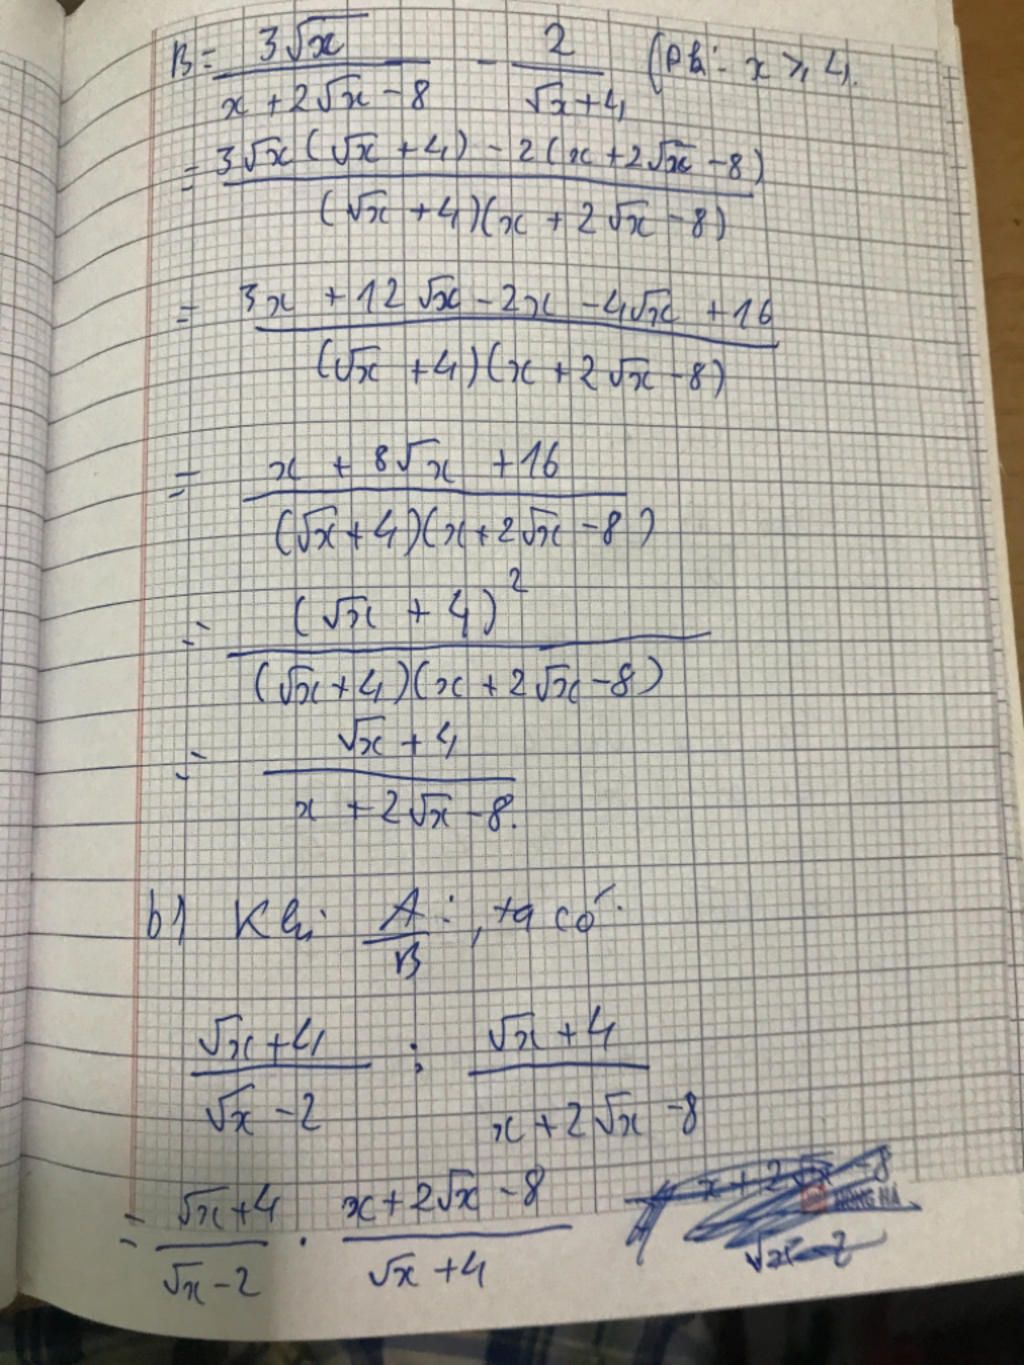 B = 3√x / (x + 2√x - 8) - 2 / (√x + 4) (Đk: x ≥ 4.
= (3√x (√x + 4) - 2 (x + 2√x - 8)) / ((√x + 4)(x + 2√x - 8))
= (3x + 12√x - 2x - 4√x + 16) / ((√x + 4)(x + 2√x - 8))
= (x + 8√x + 16) / ((√x + 4)(x + 2√x - 8))
= (√x + 4)² / ((√x + 4)(x + 2√x - 8))
= (√x + 4) / (x + 2√x - 8).
b) Khi A/B :, ta có:
(√x + 4) / (√x - 2) : (√x + 4) / (x + 2√x - 8)
= (√x + 4) / (√x - 2) . (x + 2√x - 8) / (√x + 4)